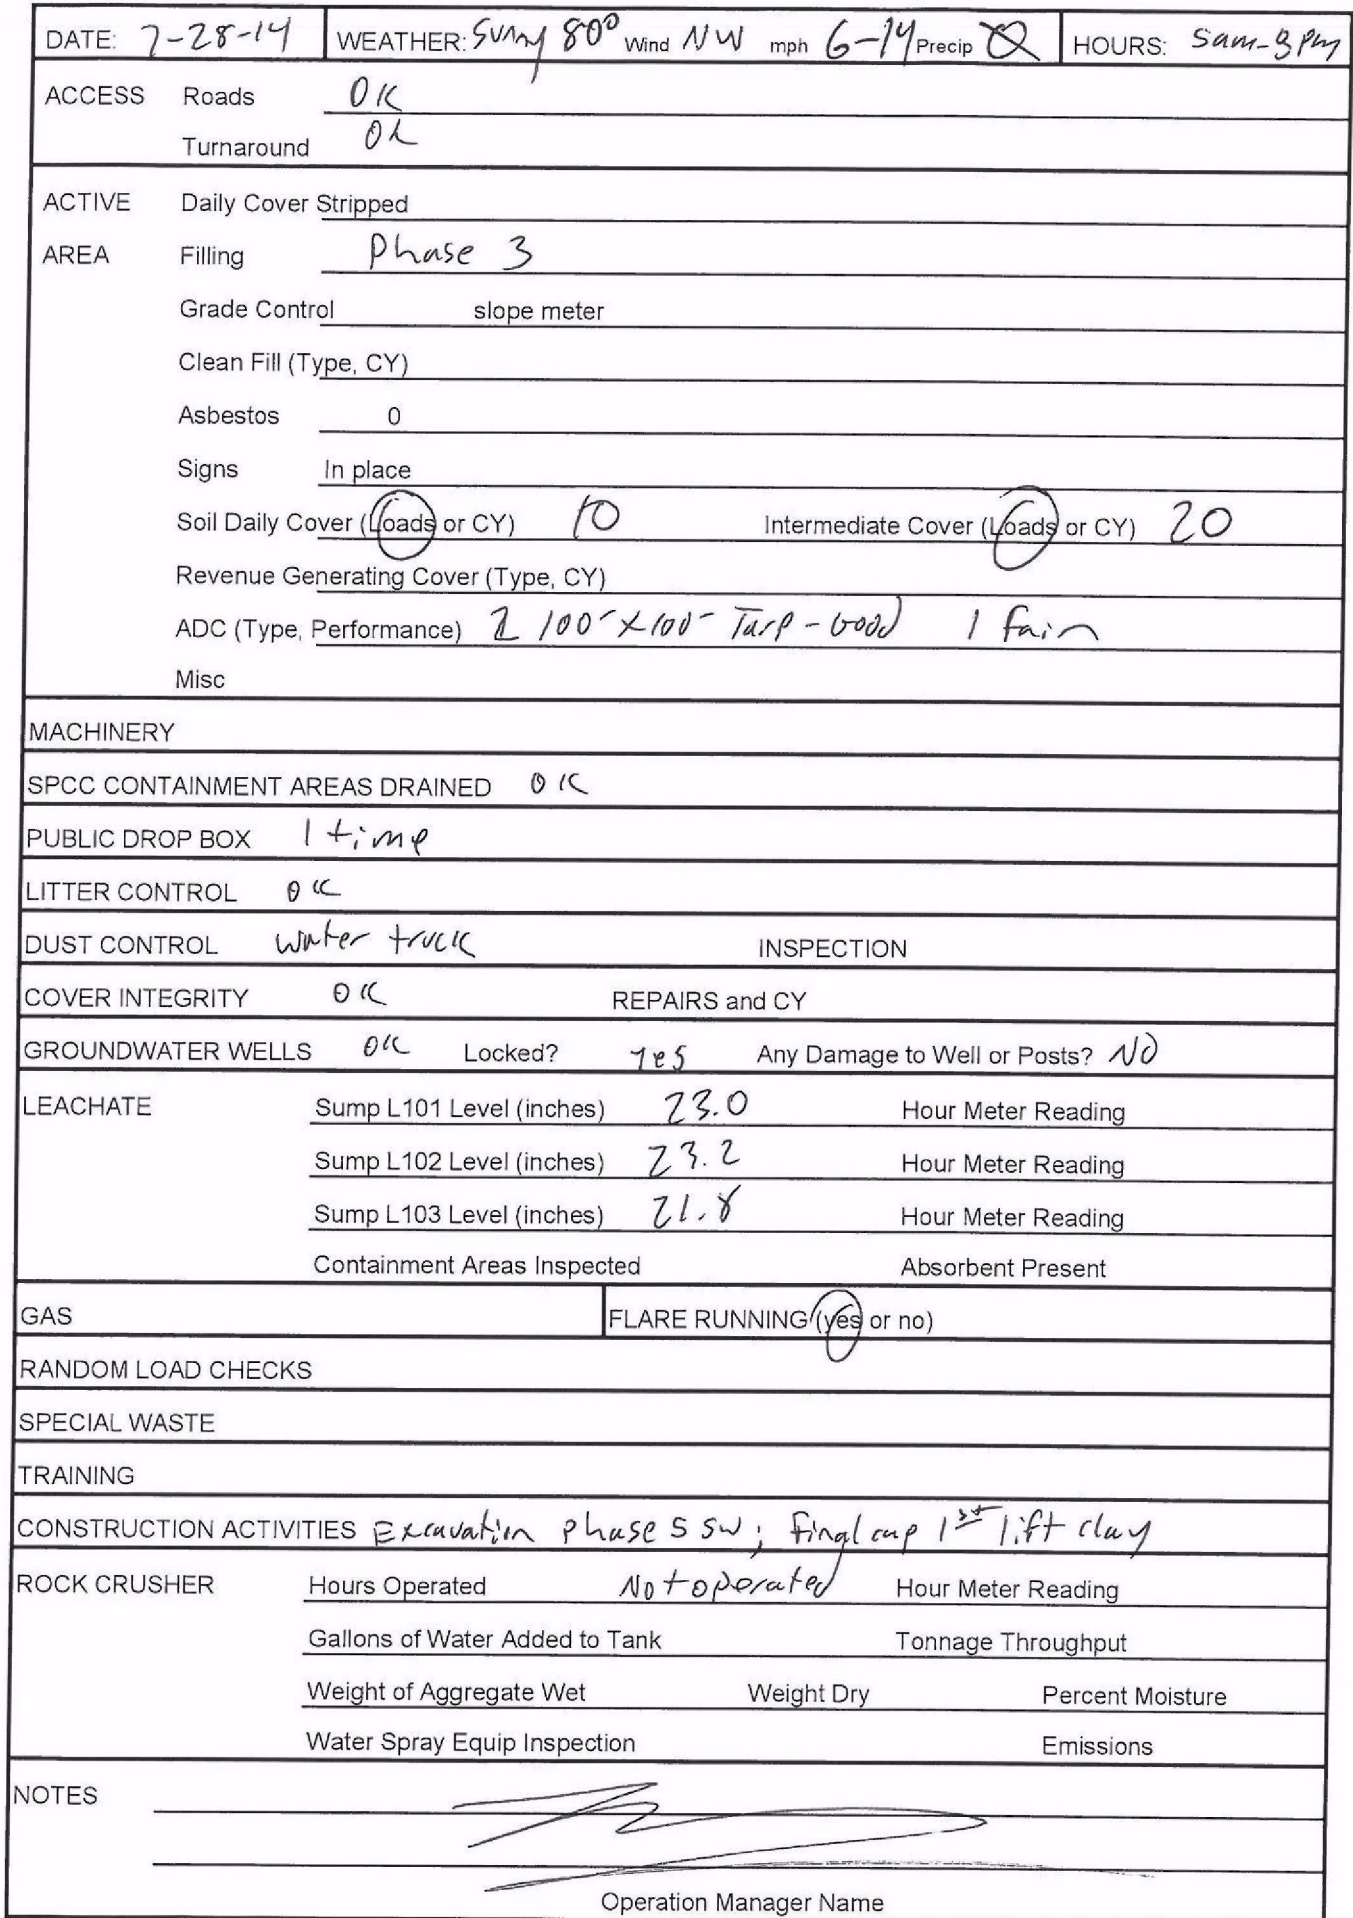 DATE: 7-28-14 WEATHER: Sunny 80° Wind NW mph 6-14 Precip 0 HOURS: 5am-8pm
ACCESS Roads OK
Turnaround OK
ACTIVE Daily Cover Stripped
AREA Filling Phase 3
Grade Control slope meter
Clean Fill (Type, CY)
Asbestos 0
Signs In place
Soil Daily Cover (Loads or CY) 10 Intermediate Cover (Loads or CY) 20
Revenue Generating Cover (Type, CY)
ADC (Type, Performance) 100' X 100' Tarp - Good 1 fair
Misc
MACHINERY
SPCC CONTAINMENT AREAS DRAINED OK
PUBLIC DROP BOX 1 time
LITTER CONTROL OK
DUST CONTROL water truck INSPECTION
COVER INTEGRITY OK REPAIRS and CY
GROUNDWATER WELLS OK Locked? Yes Any Damage to Well or Posts? NO
LEACHATE Sump L101 Level (inches) 23.0 Hour Meter Reading
Sump L102 Level (inches) 23.2 Hour Meter Reading
Sump L103 Level (inches) 21.8 Hour Meter Reading
Containment Areas Inspected Absorbent Present
GAS FLARE RUNNING (yes or no)
RANDOM LOAD CHECKS
SPECIAL WASTE
TRAINING
CONSTRUCTION ACTIVITIES Excavation phase 5 SW; final cap 1st lift clay
ROCK CRUSHER Hours Operated Not operated Hour Meter Reading
Gallons of Water Added to Tank Tonnage Throughput
Weight of Aggregate Wet Weight Dry Percent Moisture
Water Spray Equip Inspection Emissions
NOTES
Operation Manager Name